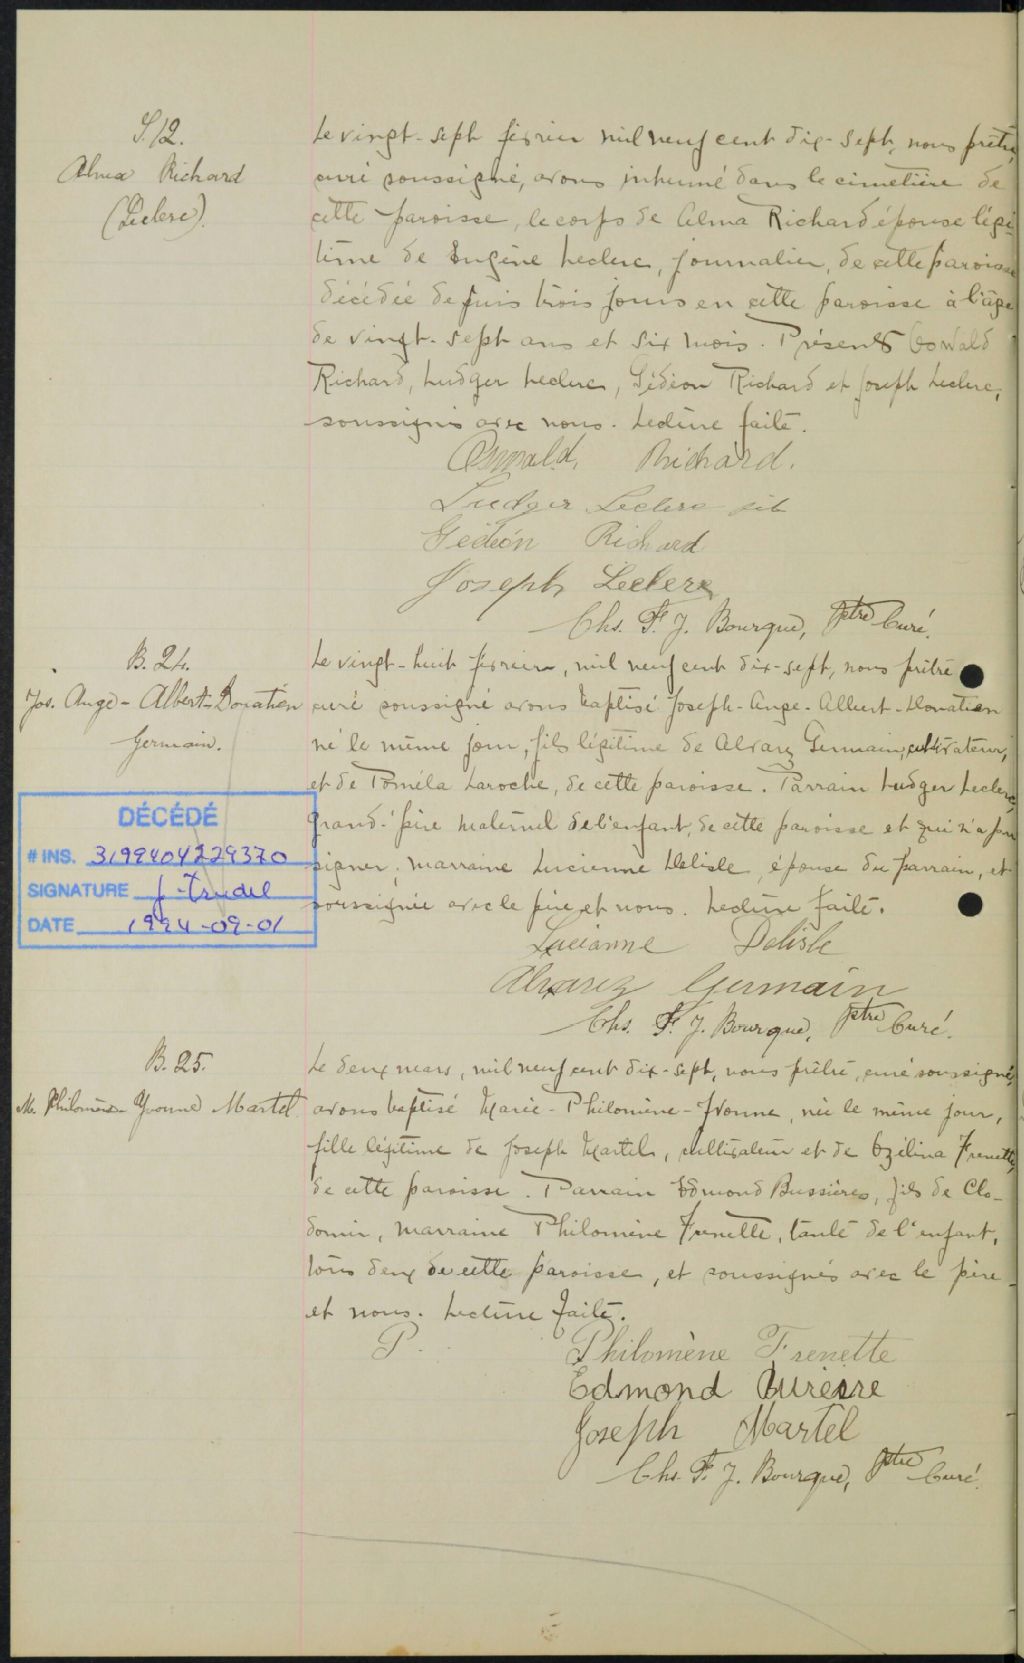 S. 12.
Alma Richard
(Leclerc).
Le vingt-sept février mil neuf cent dix-sept, nous prêtre
curé soussigné, avons inhumé dans le cimetière de
cette paroisse, le corps de Alma Richard épouse légi-
time de Eugène Leclerc, journalier, de cette paroisse
décédée depuis trois jours en cette paroisse à l'âge
de vingt-sept ans et six mois. Présents Oswald
Richard, Ludger Leclerc, Gédéon Richard et Joseph Leclerc,
soussignés avec nous. Lecture faite.
Oswald Richard.
Ludger Leclerc
Gédéon Richard
Joseph Leclerc
Chs. F. J. Bourque, Ptre Curé.
B. 24.
Jos. Ange-Albert-Donatien
Germain.
Le vingt-huit février, mil neuf cent dix-sept, nous prêtre
curé soussigné avons baptisé Joseph-Ange-Albert-Donatien
né le même jour, fils légitime de Alvarez Germain, cultivateur,
et de Poméla Laroche, de cette paroisse. Parrain Ludger Leclerc,
grand-père maternel de l'enfant, de cette paroisse et qui n'a pu
signer, marraine Lucienne Delisle, épouse du parrain, et
soussignée avec le père et nous. Lecture faite.
Lucianne Delisle
Alvarez Germain
Chs. F. J. Bourque, Ptre Curé.
DÉCÉDÉ
# INS. 3199404229370
SIGNATURE J. Trudel
DATE 1994-09-01
B. 25.
M. Philomène-Yvonne Martel
Le deux mars, mil neuf cent dix-sept, nous prêtre, curé soussigné,
avons baptisé Marie-Philomène-Yvonne, née le même jour,
fille légitime de Joseph Martel, cultivateur et de Ozélina Frenette,
de cette paroisse. Parrain Edmond Bussières, fils de Clo-
domir, marraine Philomène Frenette, tante de l'enfant,
tous deux de cette paroisse, et soussignés avec le père
et nous. Lecture faite.
P.
Philomène Frenette
Edmond
Joseph Martel
Chs. F. J. Bourque, Ptre Curé.